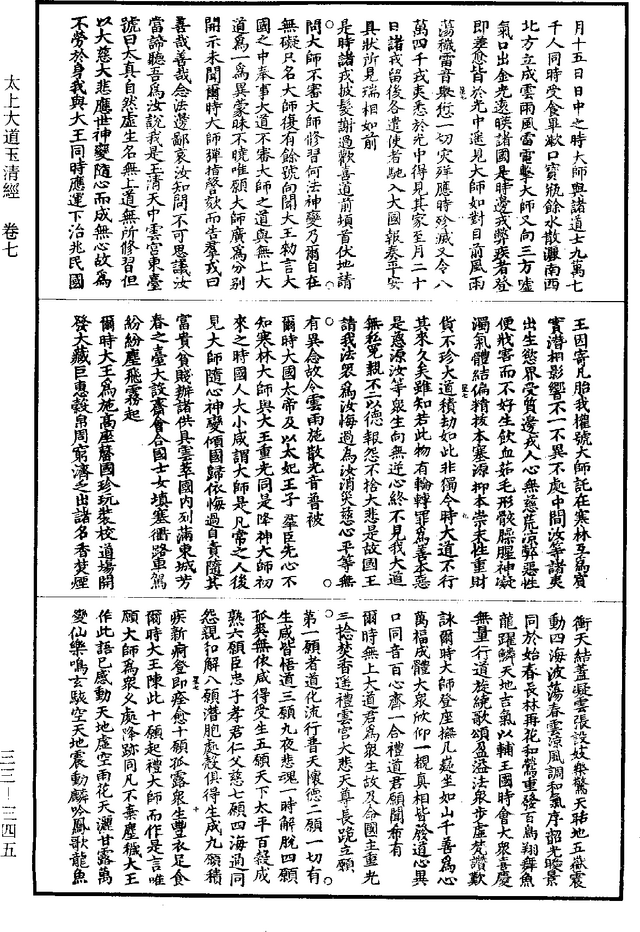 太上大道玉清經　卷七
三三－三四五
月十五日日中之時大師與諸道士九萬七
千人同時受食畢漱口寶瓶餘水散灑南西
北方立成雲雨風雷電擊大師又向三方噓
氣口出金光遠暎諸國是時邊戎弊疾者登
即差愈皆於光中遥見大師如對目前風雨
蕩穢雷音馭愆一切灾殃應時殄滅又令八
萬四千戎夷悉於光中得見其家至月二十
日諸戎留後各遣使者馳入大國報奏平安
具狀所見瑞相如前
是時諸戎披髮謝過歡喜道前頃首伏地請
問大師不審大師修習何法神變乃爾自在
無礙只名大師復有餘號向聞大王勑言大
國之中奉事大道不審大師之道與無上大
道為一為異蒙昧不曉唯願大師廣為分別
開示未聞爾時大師彈指謦欬而告羣戎曰
善哉善哉念法邊鄙哀汝知問不可思議汝
當諦聽吾為汝說我是玉清天中雲宮東臺
號曰太真自然虛生名無上道無所修習但
以大慈大悲應世神變隨心而成無心故為
不勞於身我與大王同時應運下治兆民國
王因寄凡胎我權號大師託在寒林互為賓
實潛相影響不一不異不處中間汝等諸夷
出生慾界受質邊戎人心無慈荒凉弊惡性
便戕害而不好生飲血茹毛形骸臊腥神凝
濁氣體結偏精拔本塞源抑本崇末性重財
貨不珍大道積劫如此非獨今時大道不行
其來久矣雖知若此物有輪轉罪為善本惡
是慈源汝等衆生向無迷心終不見我大道
無私冤親不二以德報怨不捨大悲是故國王
請我法衆為汝悔過為汝消灾慈心平等無
有異念故令雲雨施散光音普被
爾時大國太帝及以太妃王子羣臣先心不
知寒林大師與大王重光同是降神大師初
來之時國人大小咸謂大師是凡常之人後
見大師隨心神變傾國歸依悔過自責隨其
富貴貧賤辦諸供具雲萃國内列滿東城芳
春之臺大設齋會合國士女填塞衢路車駕
紛紛塵飛霧起
爾時大王為施高座罄國珍玩裝校道場開
發大藏巨惠穀帛周窮濟乏出諸名香焚煙
衝天結蓋凝雲張設妓樂驚天駭地五嶽震
動四海波蕩春雲凉風調和氣序韶光晚景
同於始春長林再花和鶯重發百鳥翔舞魚
龍躍鱗天地吉氣以輔王國時會大衆喜慶
無量行道旋繞歌頌盈溢法衆步虛梵讚歎
詠爾時大師登座撫几嶷坐如山千善為心
萬福成體大衆欣仰一覩真相皆發道心異
口同音百心齊一合禮道君願聞希有
爾時無上大道君為衆生故及合國主重光
三捻焚香遥禮雲宮大悲天尊長跪立願
第一願者道化流行普天懷德二願一切有
生咸皆悟道三願九夜悲魂一時解脫四願
孤煢無依咸得受生五願天下太平百穀成
熟六願臣忠子孝君仁父慈七願四海通同
怨親和解八願潛胞處㲉俱得生成九願積
疾新痾登即痊愈十願孤露衆生豐衣足食
爾時大王陳此十願起禮大師而作是言唯
願大師為衆久處降跡同凡不棄塵穢大王
作此語已感動天地虛空雨花天灑甘露萬
變仙樂鳴玄駭空天地震動麟吟鳳歌龍魚